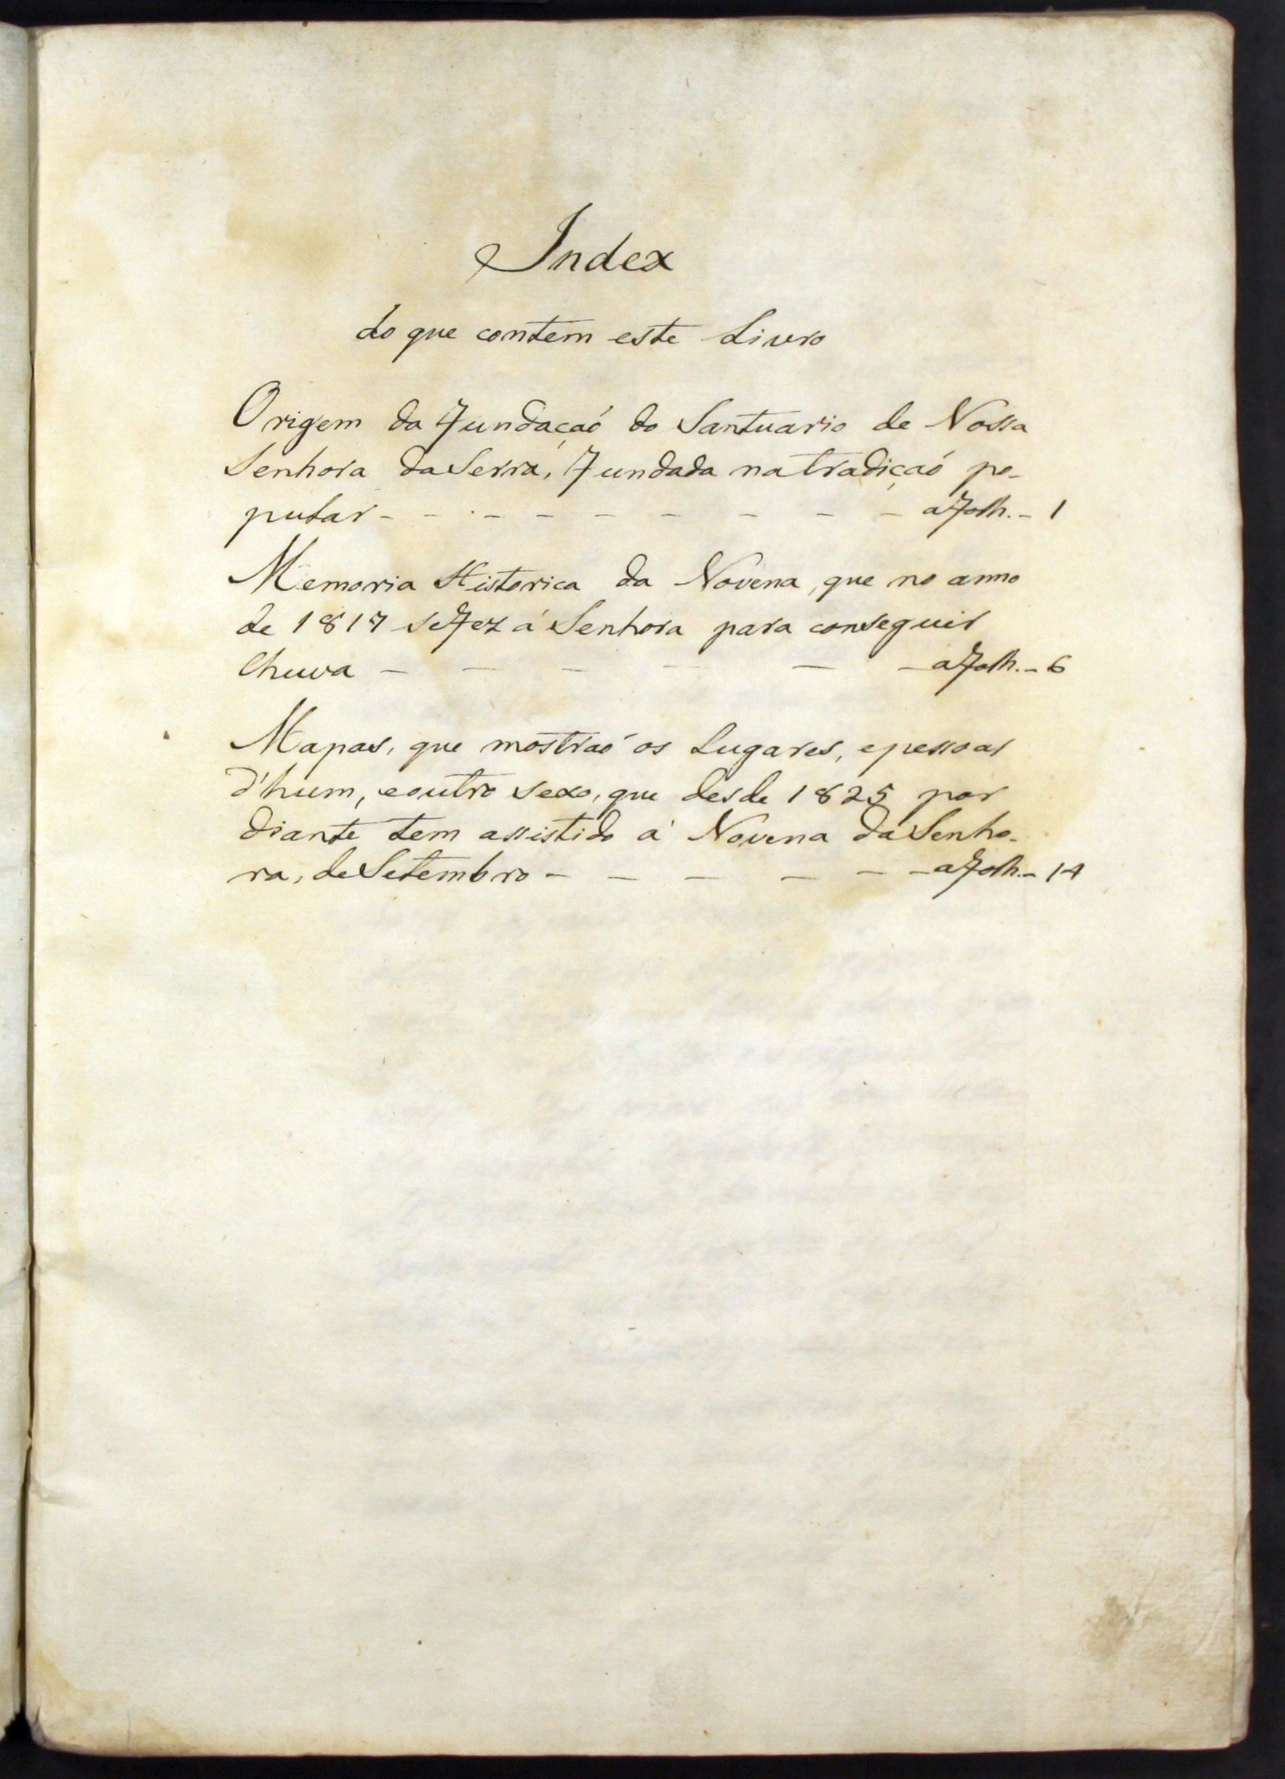 Index
do que contem este Livro
Origem da Fundaçaó do Santuario de Nossa
Senhora da Serra, Fundada na tradiçaó po-
pular - - - - - - - - - a Folh. - 1
Memoria Historica da Novena, que no anno
de 1817 se Fez á Senhora para conseguir
Chuva - - - - - - a Folh. - 6
Mapas, que mostraó os Lugares, e pessoas
d'hum, e outro sexo, que desde 1825 por
diante tem assistido á Novena da Senho-
ra, de Setembro - - - - - - a Folh. - 14